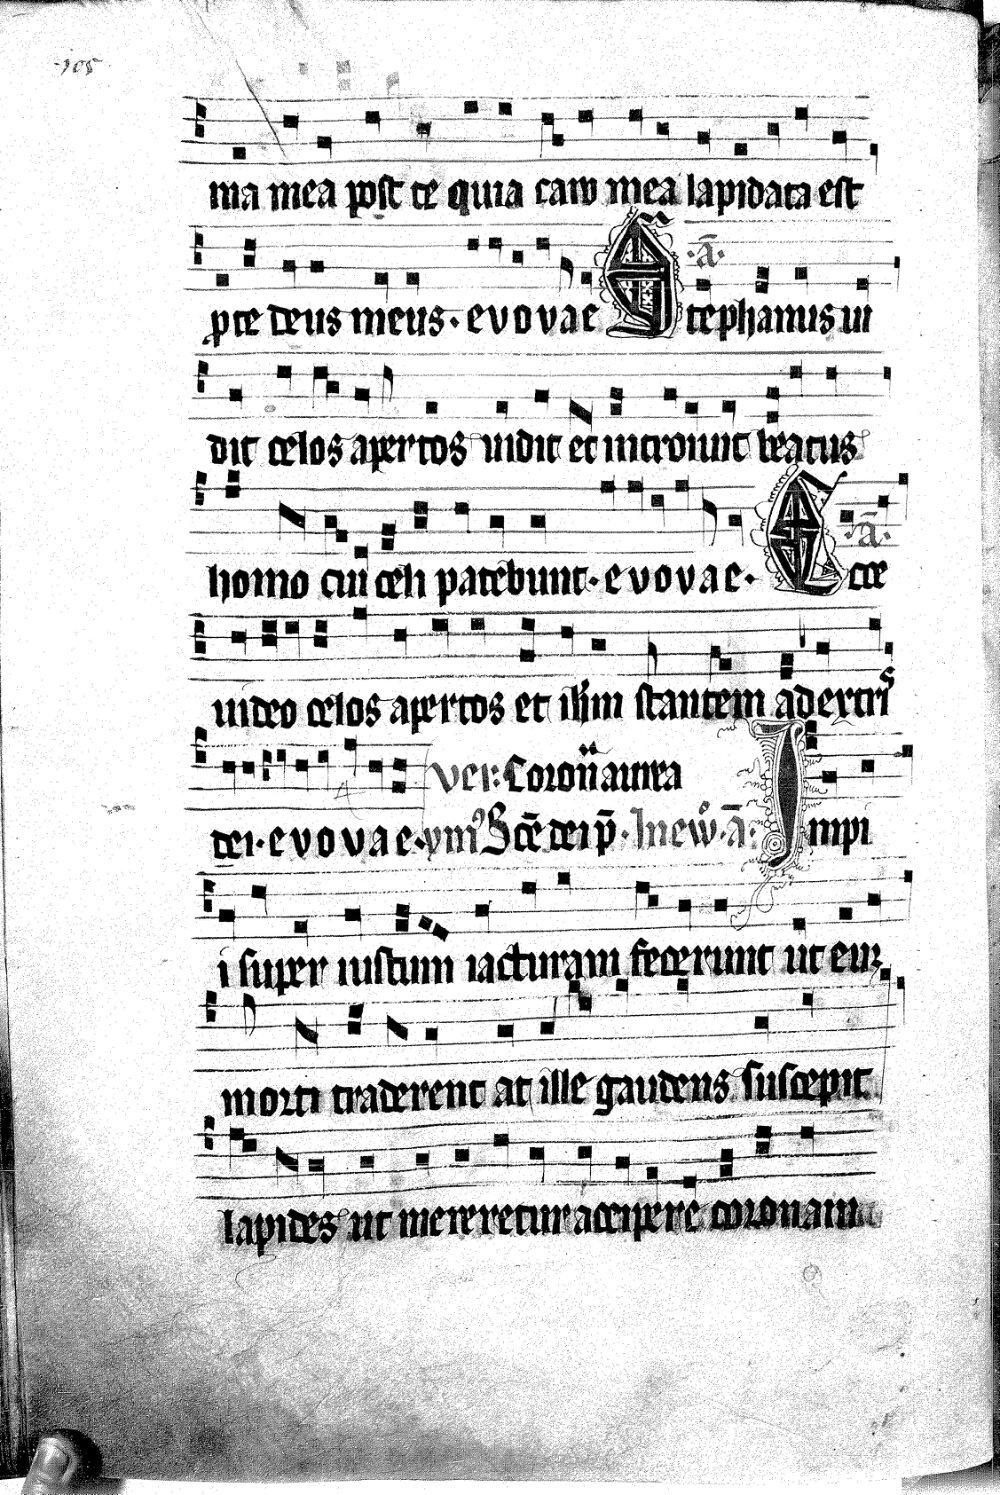 ·105
ma mea post te quia caro mea lapidata est
·ā·
ꝓte deus meus· evovae Stephanus ui
dit celos apertos uidit et introiuit beatus
homo cui celi patebunt· evovae· Ecce
·ā·
uideo celos apertos et ihm stantem adextris
ver: Coron̄ aurea
dei· evovae· ymꝰ Sce dei p̄· In ew̄· ā· Impi
i super iustum iacturam fecerunt ut eum
morti traderent at ille gaudens suscepit
lapides ut mereretur accipere coronam